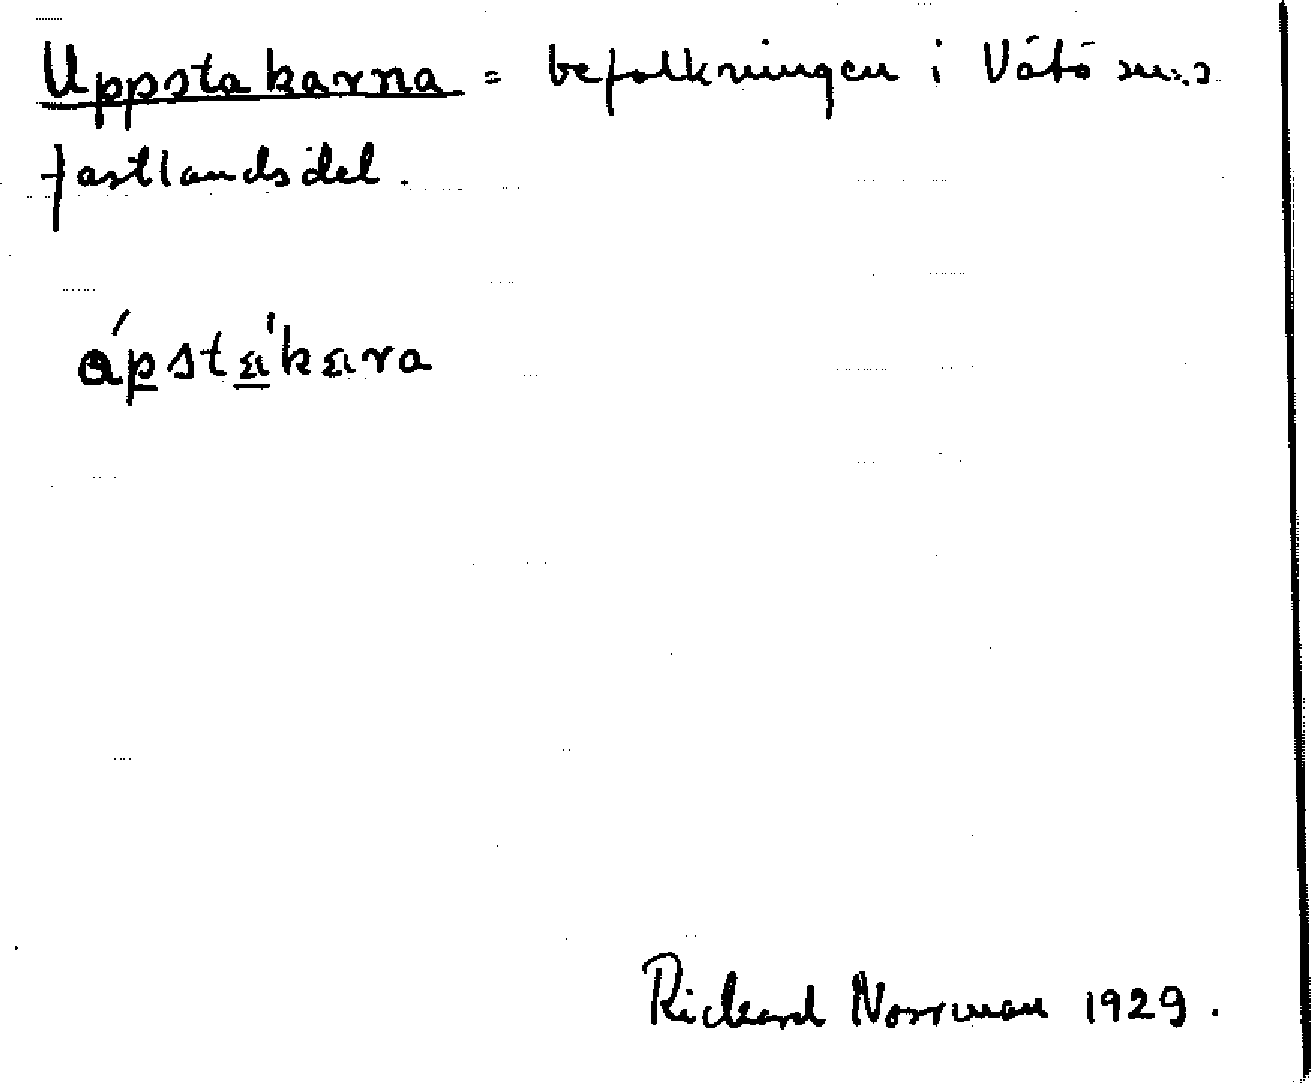 Uppstakarna = befolkningen i Vätö sn:s
fastlandsdel.
Rickard Norrman 1929.